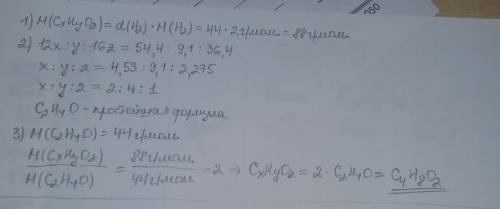 1) M(CxHyO2) = d(H2) · M(H2) = 44 · 2 г/моль = 88 г/моль
2) 12x : y : 16z = 54,4 : 9,1 : 36,4
x : y : z = 4,53 : 9,1 : 2,275
x : y : z = 2 : 4 : 1
C2H4O - простейшая формула
3) M(C2H4O) = 44 г/моль
M(CxHyO2) / M(C2H4O) = 88 г/моль / 44 г/моль = 2 => CxHyO2 = 2 · C2H4O = C4H8O2